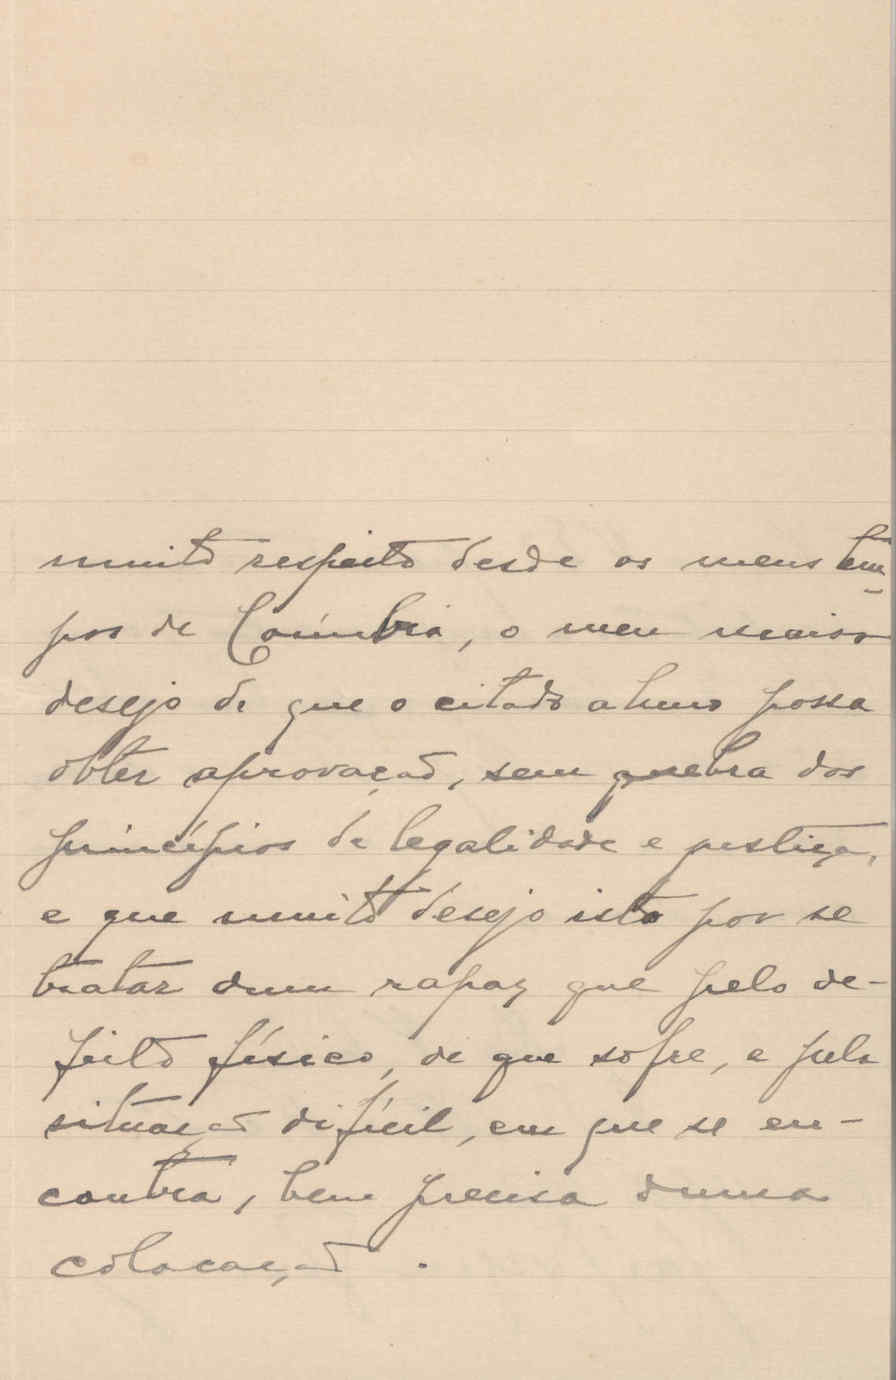 muito respeito desde os meus tem-
pos de Coimbra, o meu maior
desejo de que o citado aluno possa
obter aprovação, sem quebra dos
princípios de legalidade e justiça,
e que muito desejo isto por se
tratar dum rapaz que pelo de-
feito físico, de que sofre, e pela
situação difícil, em que se en-
contra, bem precisa duma
colocação.